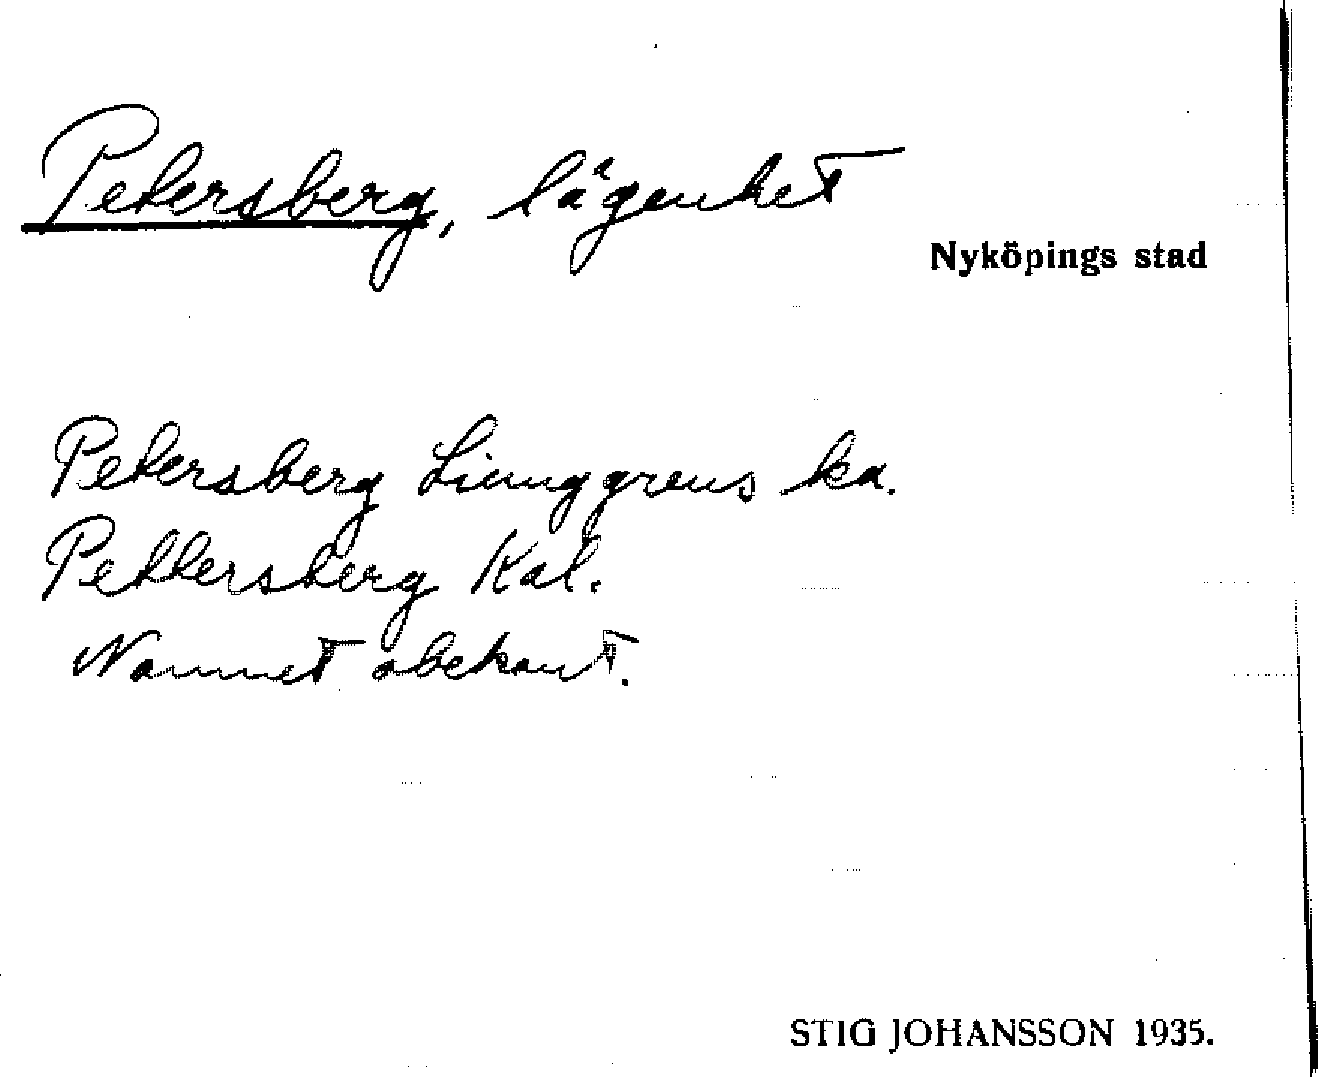 Petersberg, lägenhet
Nyköpings stad
Petersberg Liunggrens ka.
Pettersberg Kal.
Namnet obekant.
STIG JOHANSSON 1935.